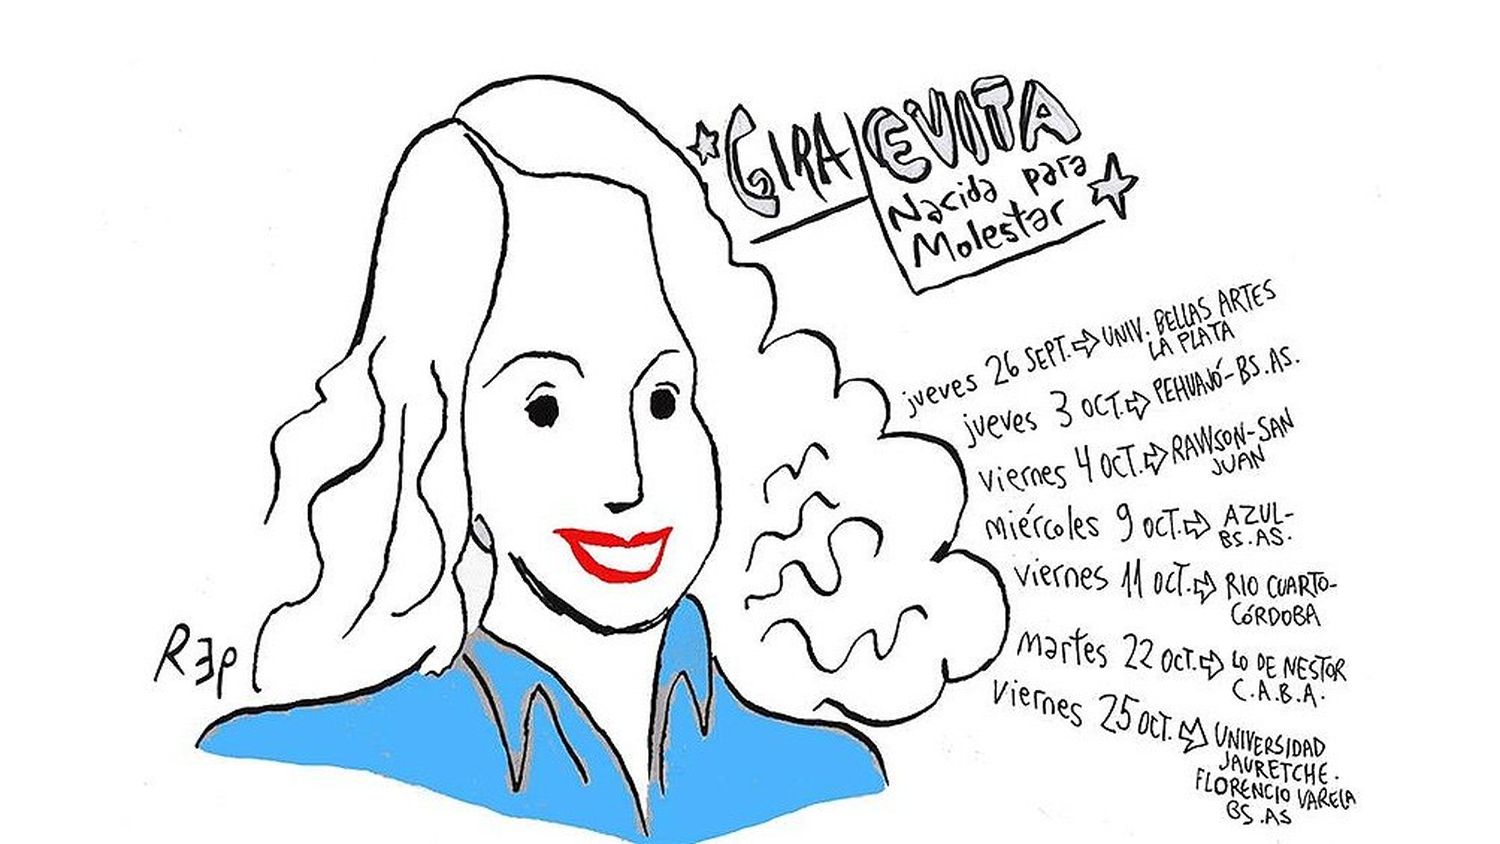 GIRA EVITA
Nacida para
Molestar
jueves 26 SEPT. ⇨ UNIV. BELLAS ARTES
LA PLATA
jueves 3 OCT. ⇨ PEHUAJÓ-BS.AS.
viernes 4 OCT. ⇨ RAWSON-SAN
JUAN
miércoles 9 OCT. ⇨ AZUL-
BS.AS.
viernes 11 OCT. ⇨ RIO CUARTO-
CÓRDOBA
martes 22 OCT. ⇨ LO DE NESTOR
C.A.B.A.
viernes 25 OCT. ⇨ UNIVERSIDAD
JAURETCHE.
FLORENCIO VARELA
BS.AS
Rep